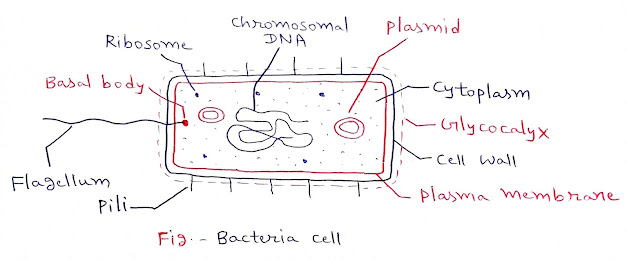 Chromosomal
DNA
Plasmid
Ribosome
Basal body
Cytoplasm
Glycocalyx
Cell Wall
Flagellum
Pili
Plasma membrane
Fig.- Bacteria cell